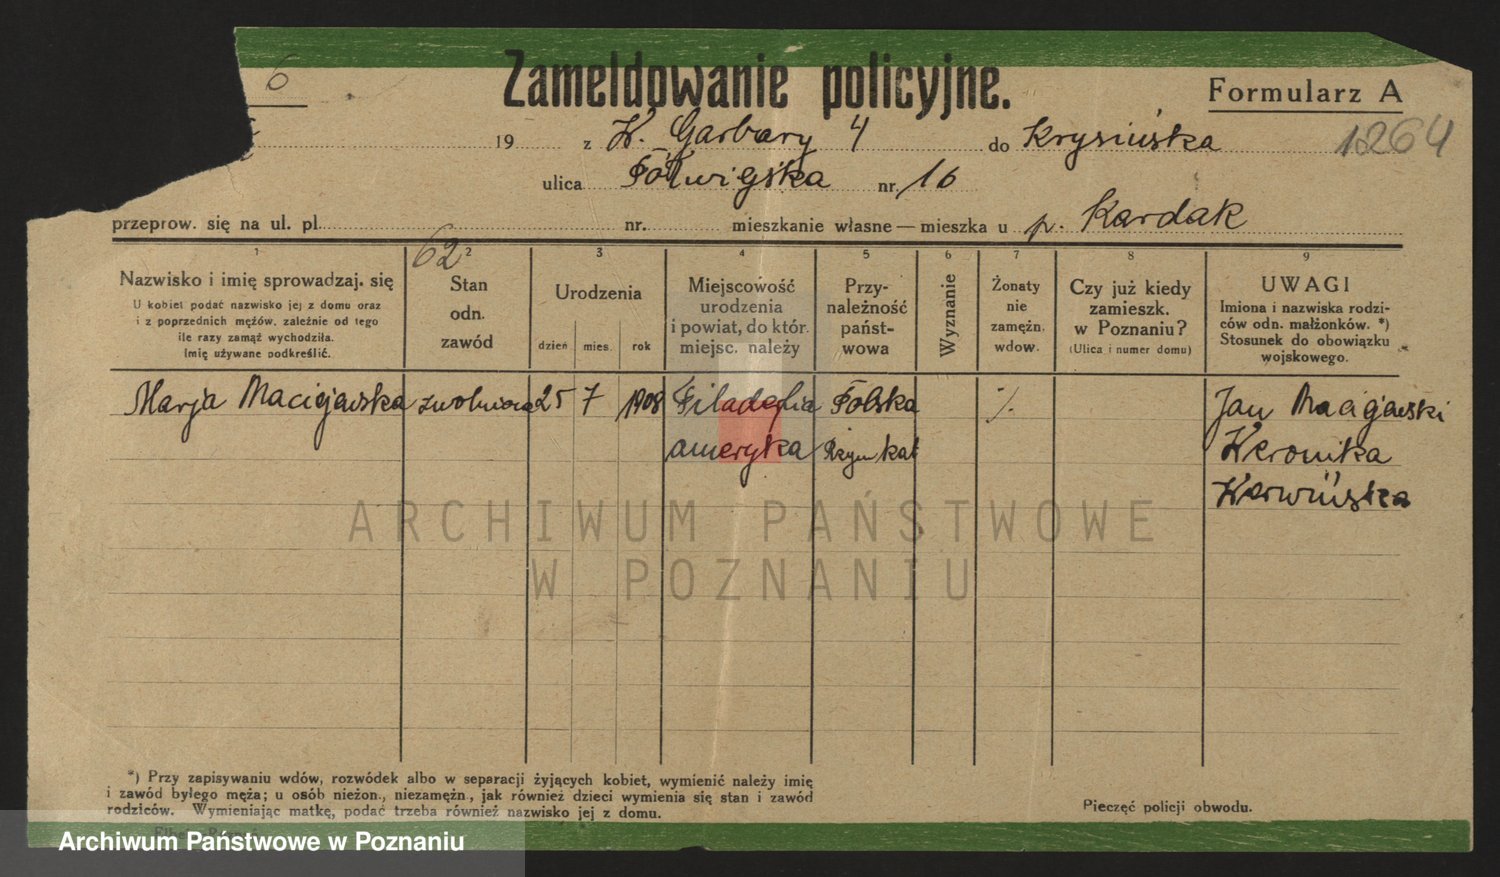 6
Zameldowanie policyjne.
Formularz A
19 z W. Garbary 4 do Krysińska
1264
ulica Półwiejska nr. 16
przeprow. się na ul. pl. nr. mieszkanie własne — mieszka u p. Kardak
62
1 2 3 4 5 6 7 8 9
Nazwisko i imię sprowadzaj. się
U kobiet podać nazwisko jej z domu oraz
i z poprzednich mężów, zależnie od tego
ile razy zamąż wychodziła.
Imię używane podkreślić.
Stan
odn.
zawód
Urodzenia
dzień mies. rok
Miejscowość
urodzenia
i powiat, do któr.
miejsc. należy
Przy-
należność
państ-
wowa
Wyznanie
Żonaty
nie
zamężn.
wdow.
Czy już kiedy
zamieszk.
w Poznaniu?
(Ulica i numer domu)
UWAGI
Imiona i nazwiska rodzi-
ców odn. małżonków. *)
Stosunek do obowiązku
wojskowego.
Marja Maciejewska 25 7 1908 Filadelfia Polska Jan Maciejewski
ameryka Rzym kat Weronika
Karwińska
ARCHIWUM PAŃSTWOWE
W POZNANIU
*) Przy zapisywaniu wdów, rozwódek albo w separacji żyjących kobiet, wymienić należy imię
i zawód byłego męża; u osób nieżon., niezamężn., jak również dzieci wymienia się stan i zawód
rodziców. Wymieniając matkę, podać trzeba również nazwisko jej z domu.
Pieczęć policji obwodu.
Archiwum Państwowe w Poznaniu